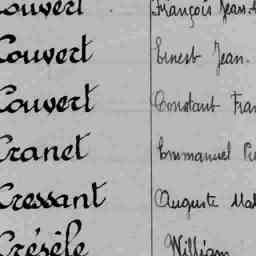 Couvert François Jean
Couvert Ernest Jean
Couvert Constant
Cranet Emmanuel
Cressant Auguste
Crésèle William